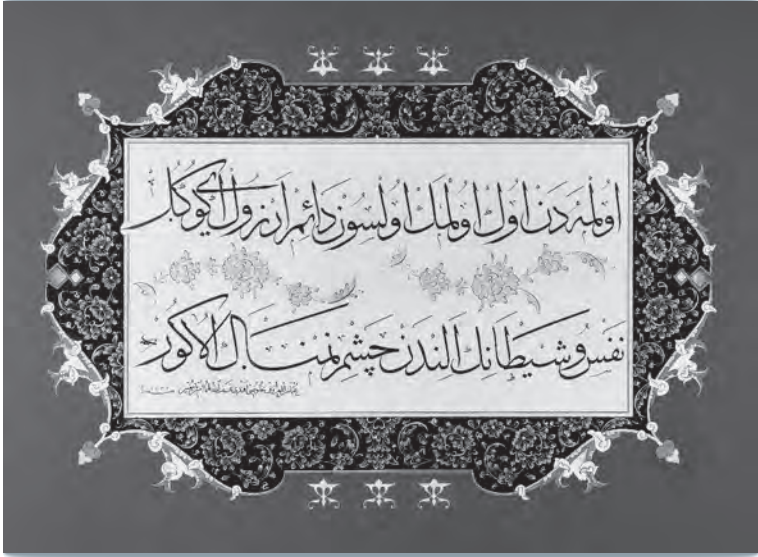 اولمه دن اول اولمك اولسون دائم ارزوك ای كوكل
نفس و شيطانك الندن چشم نمناك الا كور